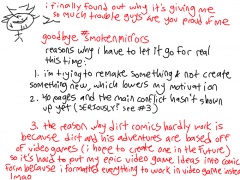 i finally found out why it's giving me
so much trouble guys are you proud of me
goodbye #smokenmirrors
reasons why i have to let it go for real
this time:
1. i'm trying to remake something & not create
something new, which lowers my motivation
2. 40 pages and the main conflict hasn't shown
up yet (SERIOUSLY? see #3)
3. the reason why dirt comics hardly work is
because dirt and his adventures are based off
of video games (i hope to create one in the future)
so it's hard to put my epic video game ideas into comic
form because i formatted everything to work in video game instead
lmao